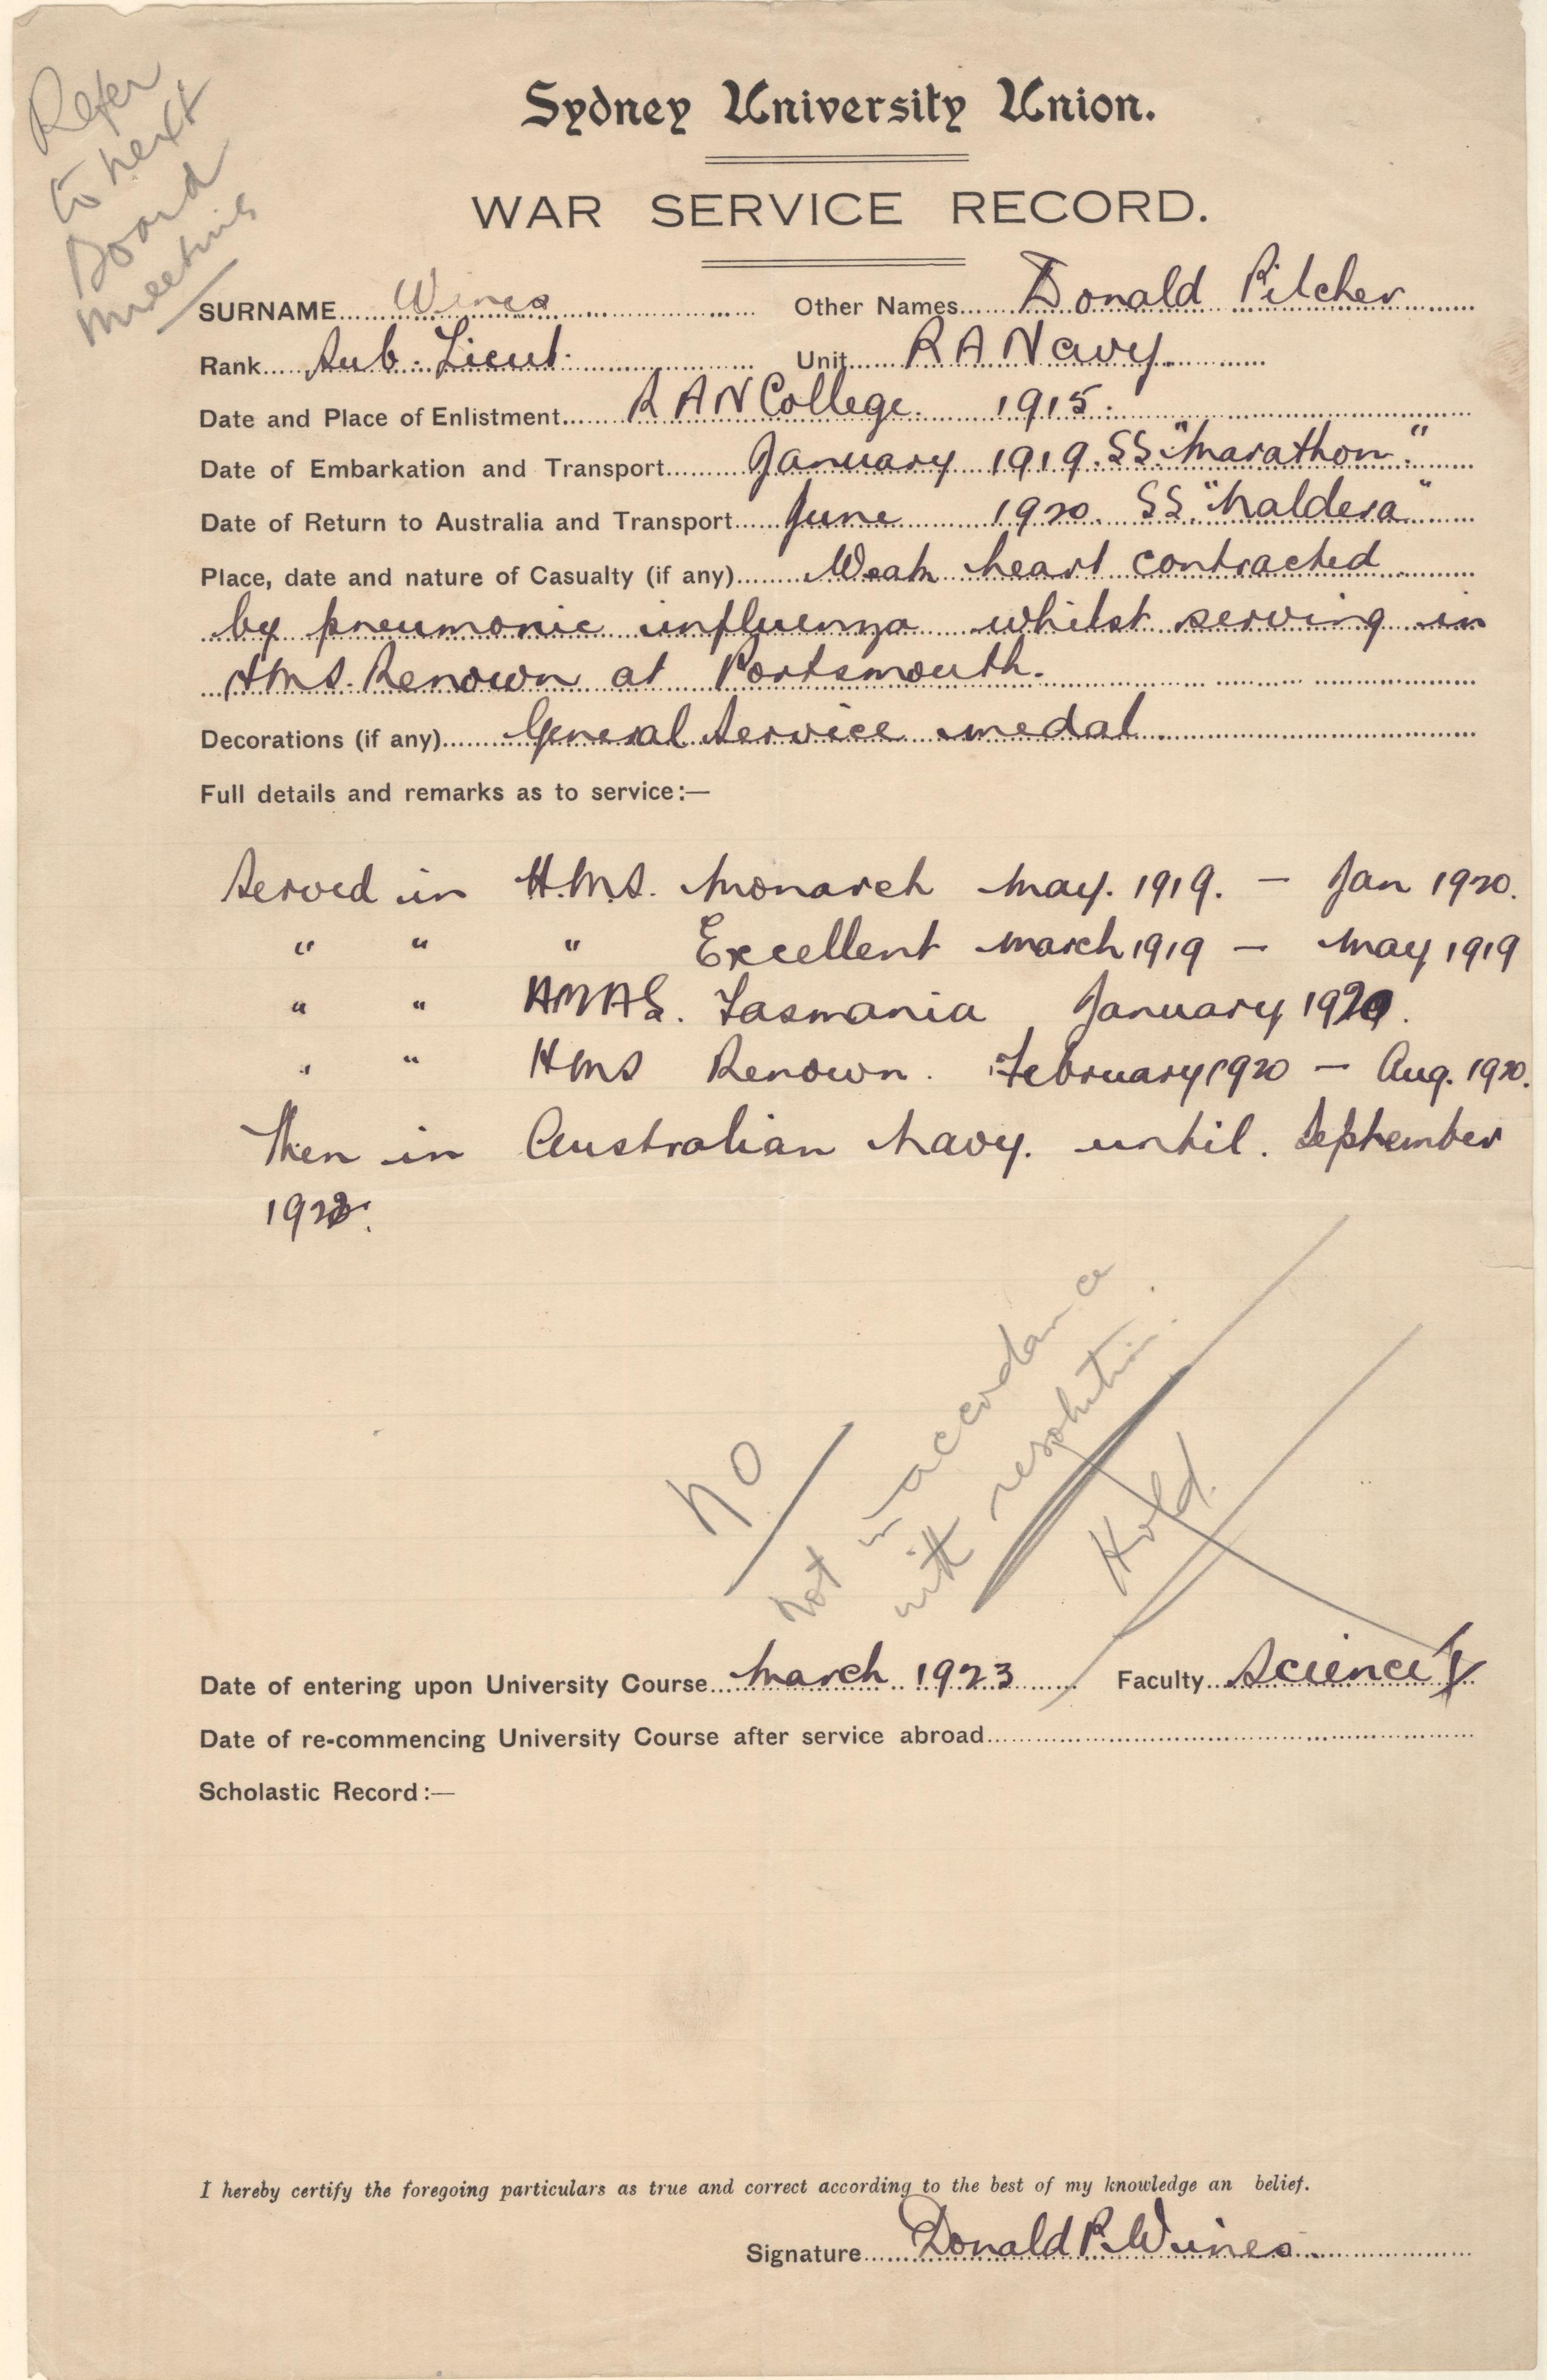 Refer
to next
Board
meeting
Sydney University Union.
WAR SERVICE RECORD.
SURNAME Wines Other Names Donald Pilcher
Rank Sub. Lieut. Unit R A Navy.
Date and Place of Enlistment R A N College. 1915.
Date of Embarkation and Transport January 1919. SS. "Marathon."
Date of Return to Australia and Transport June 1920. SS. "Naldera"
Place, date and nature of Casualty (if any) Weak heart contracted
by pneumonic influenza whilst serving in
HMS. Renown at Portsmouth.
Decorations (if any) General Service medal
Full details and remarks as to service:—
Served in H.M.S. Monarch May. 1919. — Jan 1920.
" " " Excellent March 1919 — May 1919
" " HMAS. Tasmania January 1920.
" " HMS Renown. February 1920 — Aug. 1920.
Then in Australian Navy. until. September
NO
not in accordance
with resolution.
Hold.
Date of entering upon University Course March 1923 Faculty Science
Date of re-commencing University Course after service abroad
Scholastic Record:—
I hereby certify the foregoing particulars as true and correct according to the best of my knowledge an belief.
Signature Donald P. Wines.